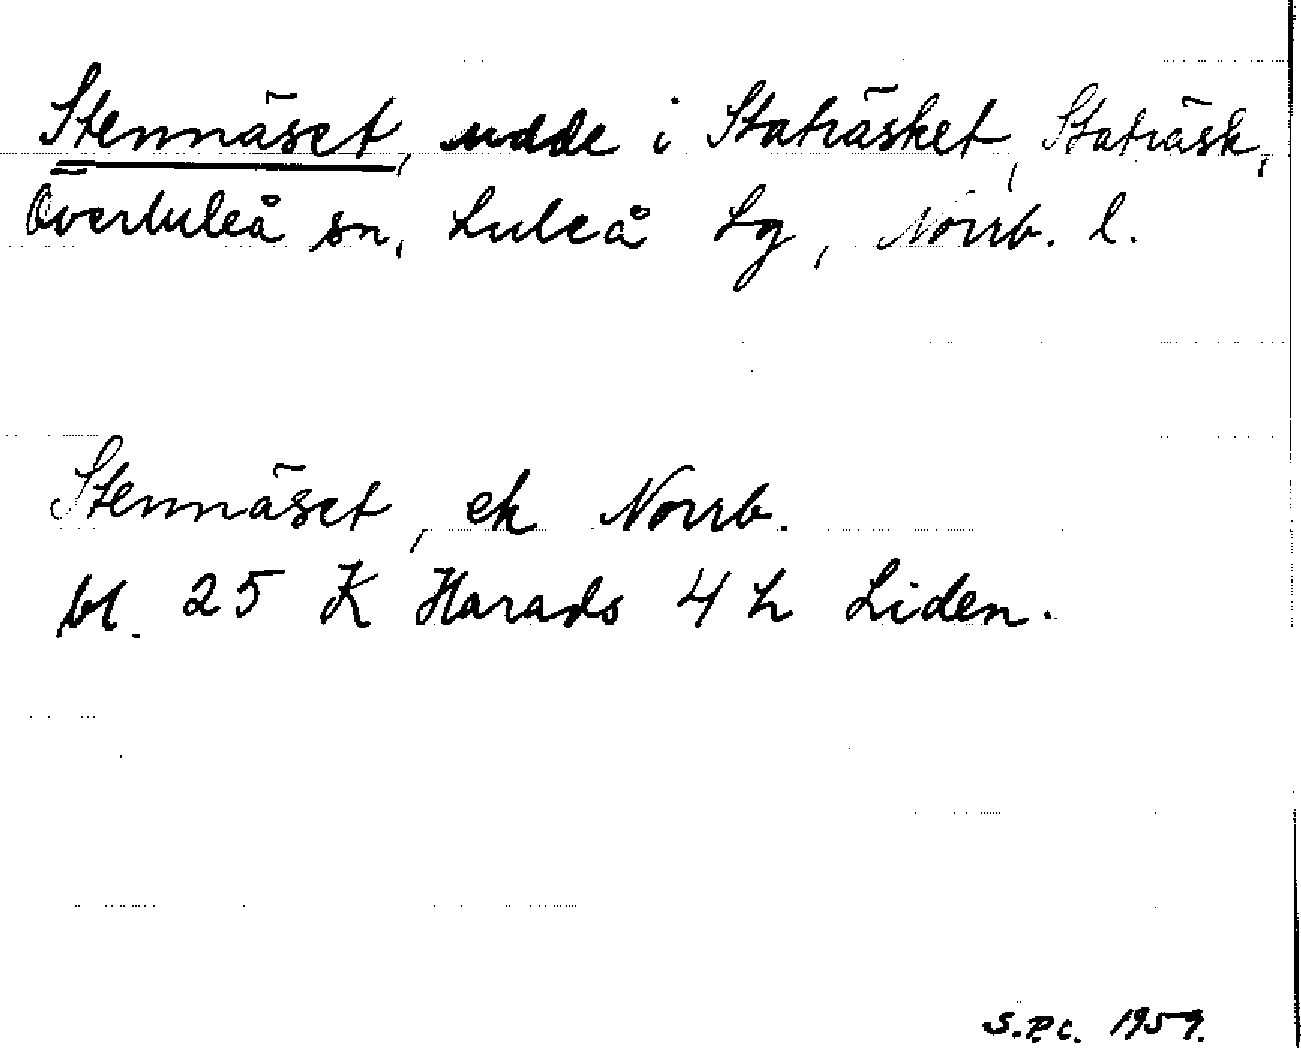 Stennäset, udde i Staträsket, Staträsk,
Överluleå sn, Luleå Lg, Norrb. l.
Stennäset, ek Norrb.
bl. 25 K Harads 4 h Liden.
S.P.C. 1959.